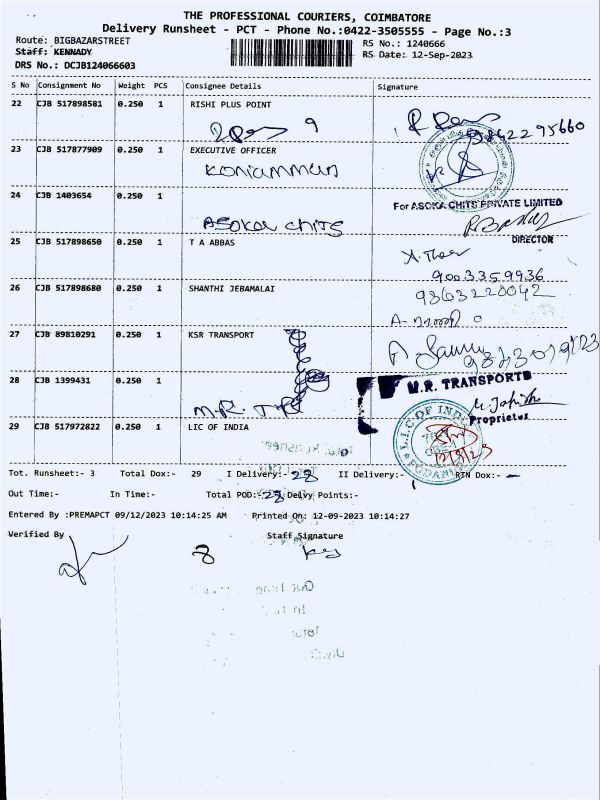 THE PROFESSIONAL COURIERS, COIMBATORE
Delivery Runsheet - PCT - Phone No.:0422-3505555 - Page No.:3
Route: BIGBAZARSTREET RS No.: 1240666
Staff: KENNADY RS Date: 12-Sep-2023
DRS No.: DCJB124066603
S No Consignment No Weight PCS Consignee Details Signature
22 CJB 517898581 0.250 1 RISHI PLUS POINT
9842295660
23 CJB 517877909 0.250 1 EXECUTIVE OFFICER
Koniamman
24 CJB 1403654 0.250 1 For ASOKA CHITS PRIVATE LIMITED
ASOKA CHITS
DIRECTOR
25 CJB 517898650 0.250 1 T A ABBAS
9003359936
26 CJB 517898680 0.250 1 SHANTHI JEBAMALAI 9363220042
27 CJB 89810291 0.250 1 KSR TRANSPORT
28 CJB 1399431 0.250 1 M.R. TRANSPORTS
M.R. TPS
Proprietor
29 CJB 517972822 0.250 1 LIC OF INDIA L.I.C. OF INDIA
12/9/23
Tot. Runsheet:- 3 Total Dox:- 29 I Delivery:- 28 II Delivery:- RTN Dox:- -
Out Time:- In Time:- Total POD:- 28 Delvy Points:-
Entered By :PREMAPCT 09/12/2023 10:14:25 AM Printed On: 12-09-2023 10:14:27
Verified By Staff Signature
8